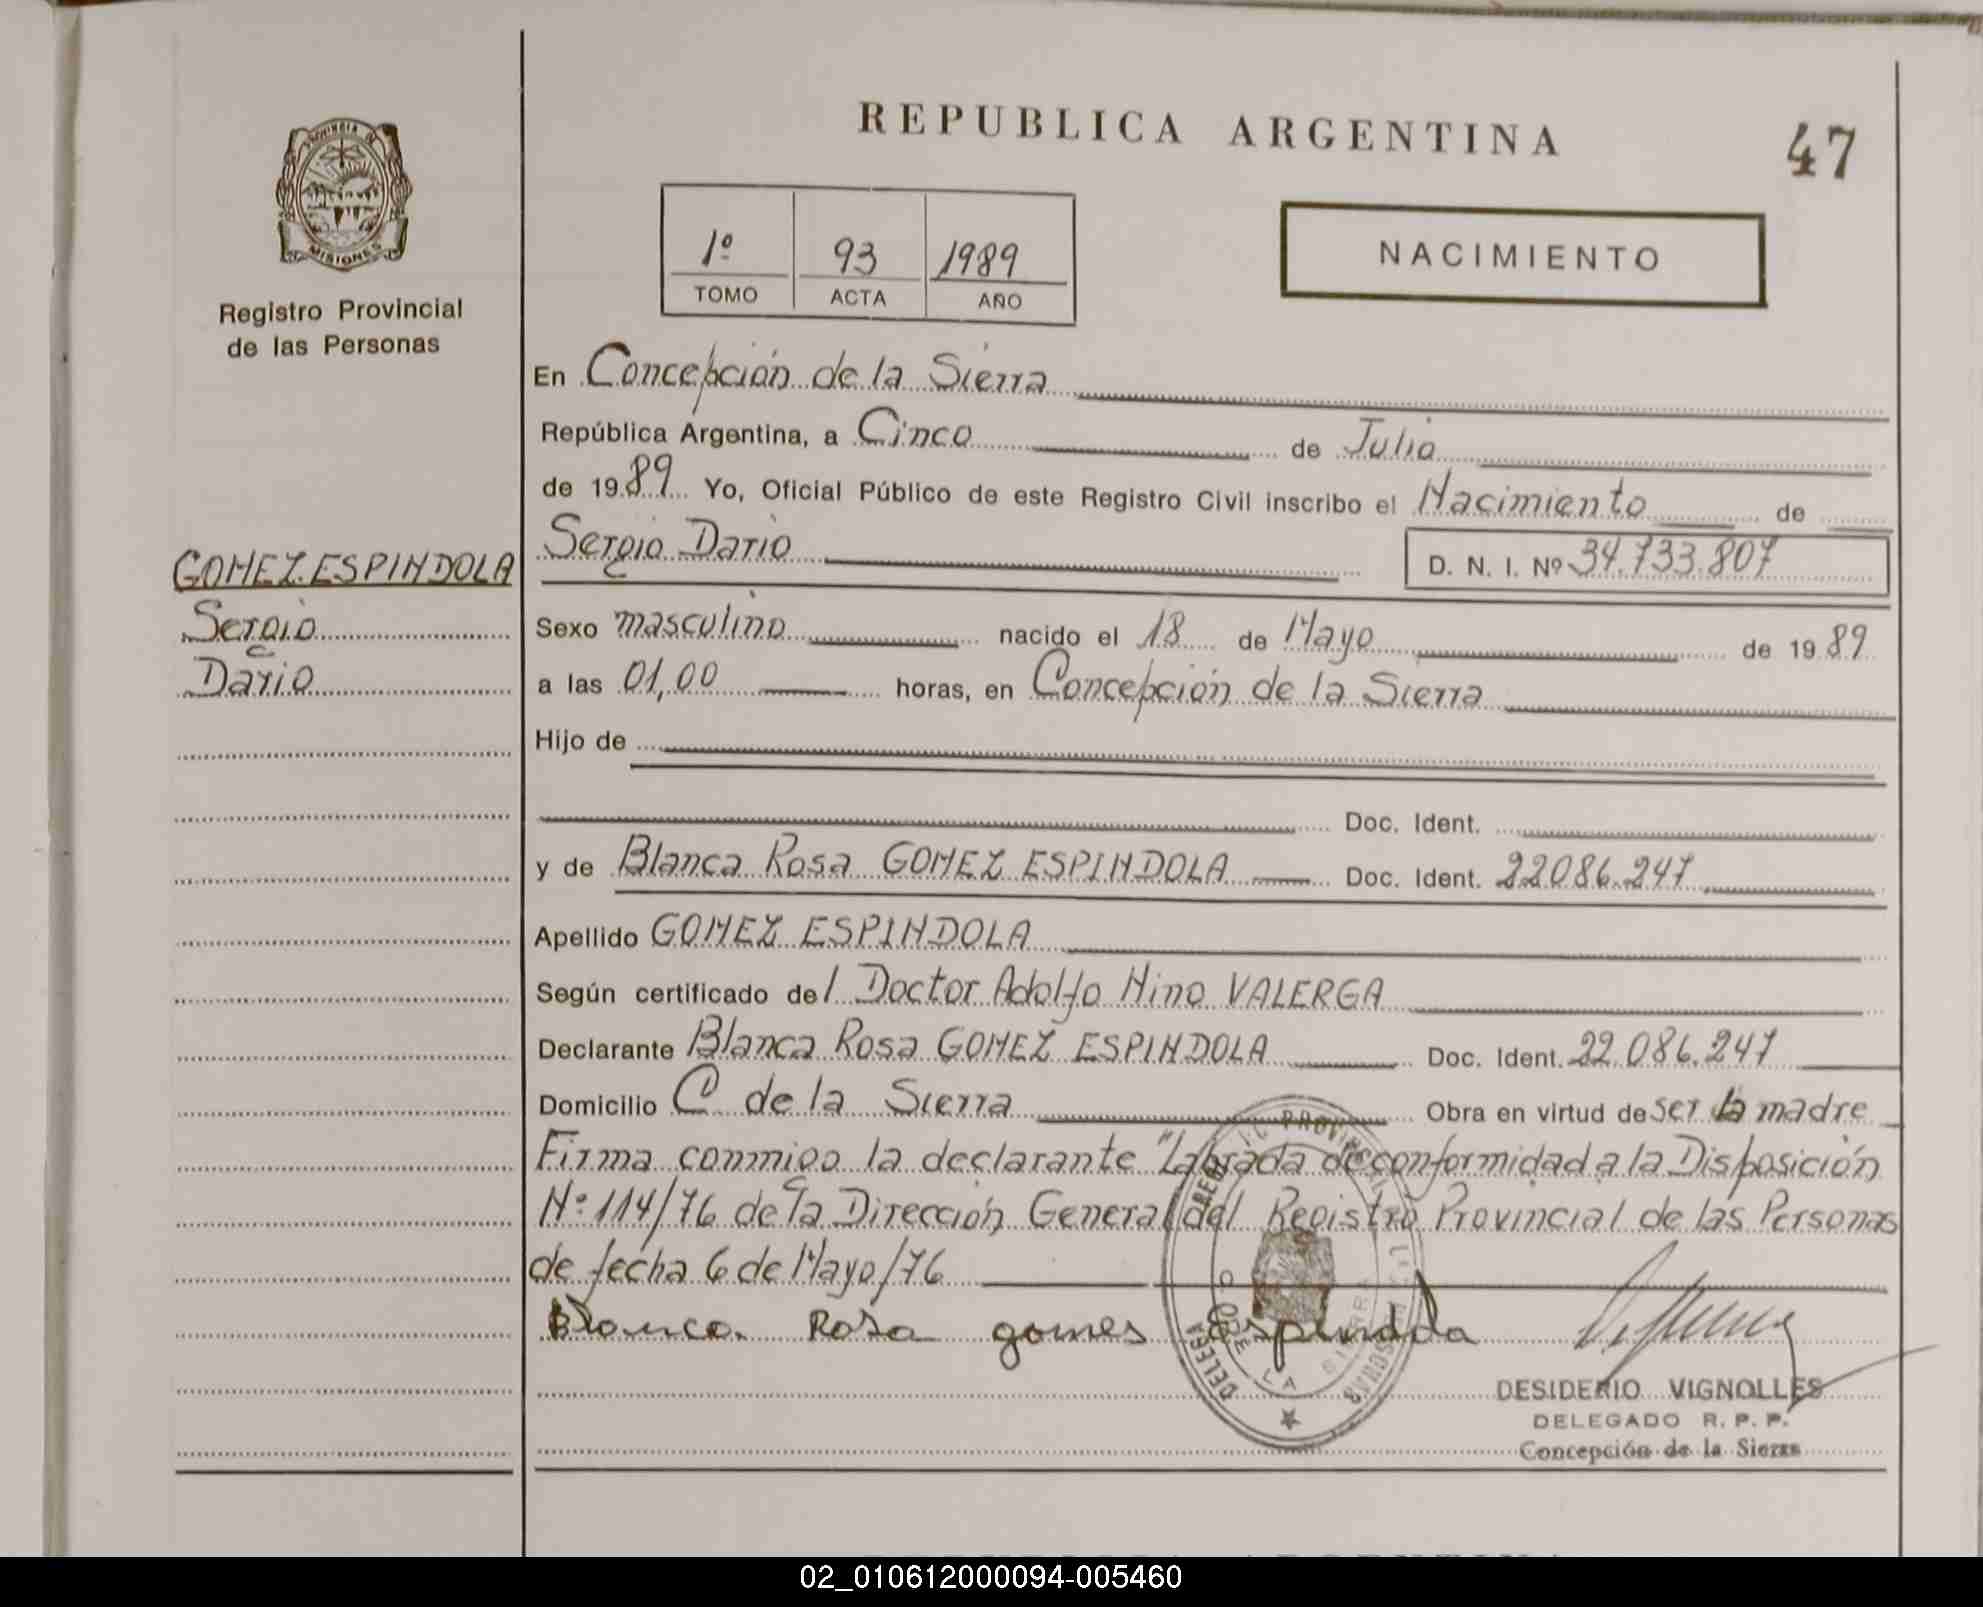 REPUBLICA ARGENTINA
47
PROVINCIA DE
MISIONES
Registro Provincial
de las Personas
1º 93 1989
TOMO ACTA AÑO
NACIMIENTO
En Concepción de la Sierra
República Argentina, a Cinco de Julio
de 1989 Yo, Oficial Público de este Registro Civil inscribo el Nacimiento de
Sergio Dario D. N. I. Nº 34.733.807
GOMEZ ESPINDOLA
Sergio
Dario
Sexo masculino nacido el 18 de Mayo de 1989
a las 01,00 horas, en Concepción de la Sierra
Hijo de
Doc. Ident.
y de Blanca Rosa GOMEZ ESPINDOLA Doc. Ident. 22086.247
Apellido GOMEZ ESPINDOLA
Según certificado del Doctor Adolfo Nino VALERGA
Declarante Blanca Rosa GOMEZ ESPINDOLA Doc. Ident. 22.086.247
Domicilio C de la Sierra Obra en virtud de ser la madre
Firma conmigo la declarante "Labrada de conformidad a la Disposición
Nº 114/76 de la Dirección General del Registro Provincial de las Personas
de fecha 6 de Mayo/76
Blanca Rosa gomes Espindola
DESIDERIO VIGNOLLES
DELEGADO R. P. P.
Concepción de la Sierra
02_010612000094-005460